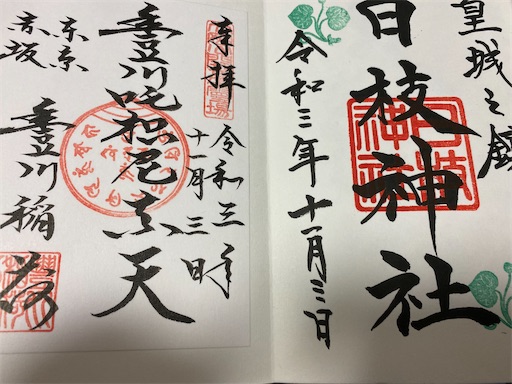 皇城之鎮
日枝神社
令和三年十一月三日
奉拝
令和三年
十一月三日
豊川吒枳尼真天
東京
赤坂
豊川稲荷